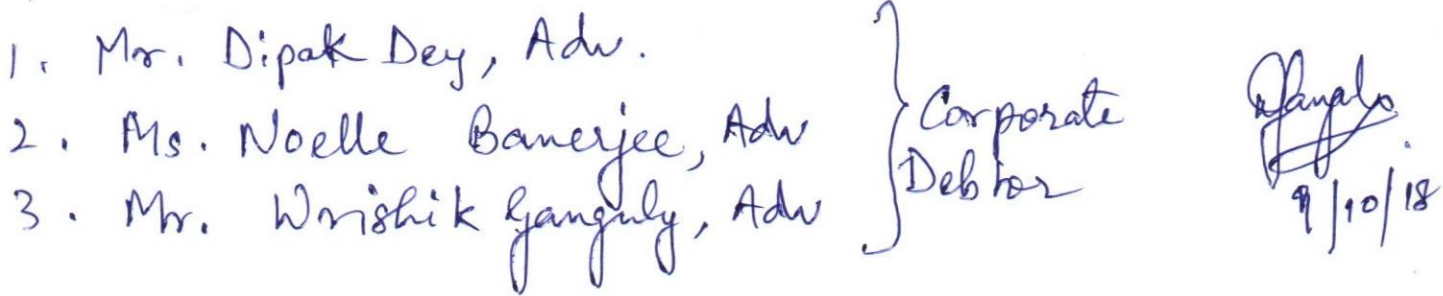 1. Mr. Dipak Dey, Adv.
2. Ms. Noelle Banerjee, Adv
3. Mr. Wrishik Ganguly, Adv
} Corporate
Debtor
9/10/18